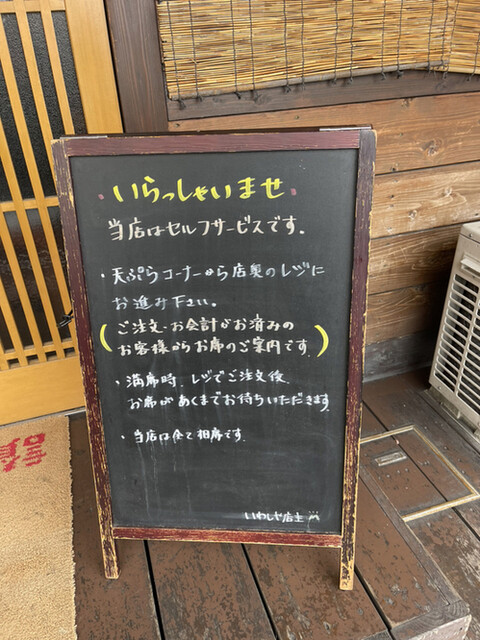 ・いらっしゃいませ・
当店はセルフサービスです。
・天ぷらコーナーから店奥のレジに
お進み下さい。
(ご注文・お会計がお済みの
お客様からお席のご案内です。)
・満席時、レジでご注文後、
お席があくまでお待ちいただきます。
・当店は全て相席です。
いわしや店主